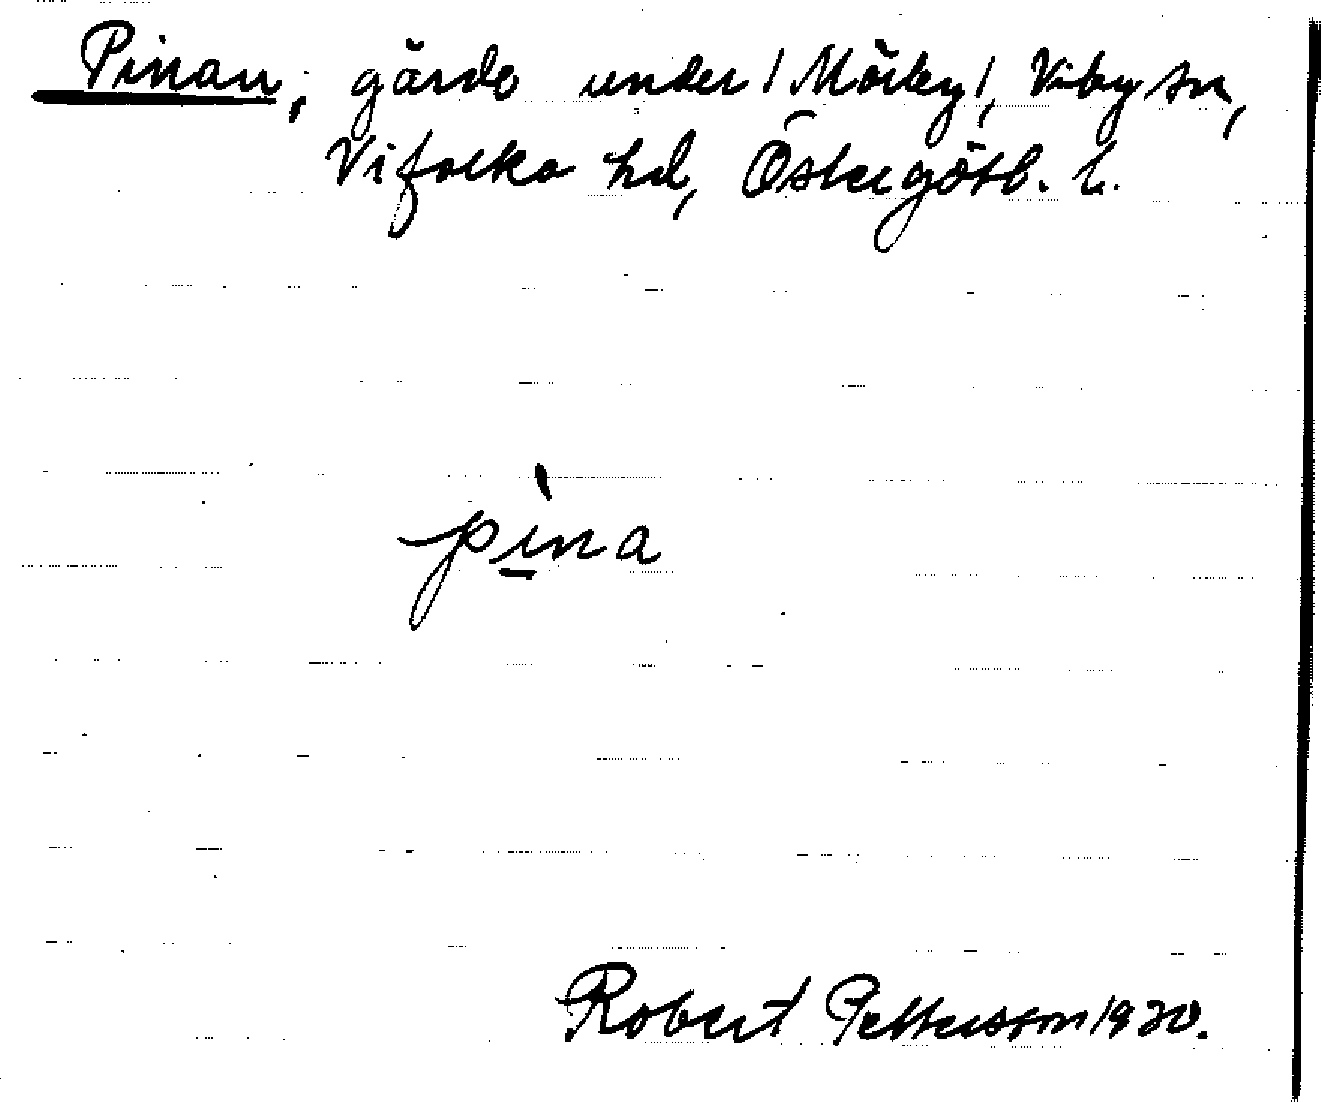 Pinan, gärde under /Mörby/, Viby sn,
Vifolka hd, Östergötl. l.
pìna
Robert Pettersson 1930.